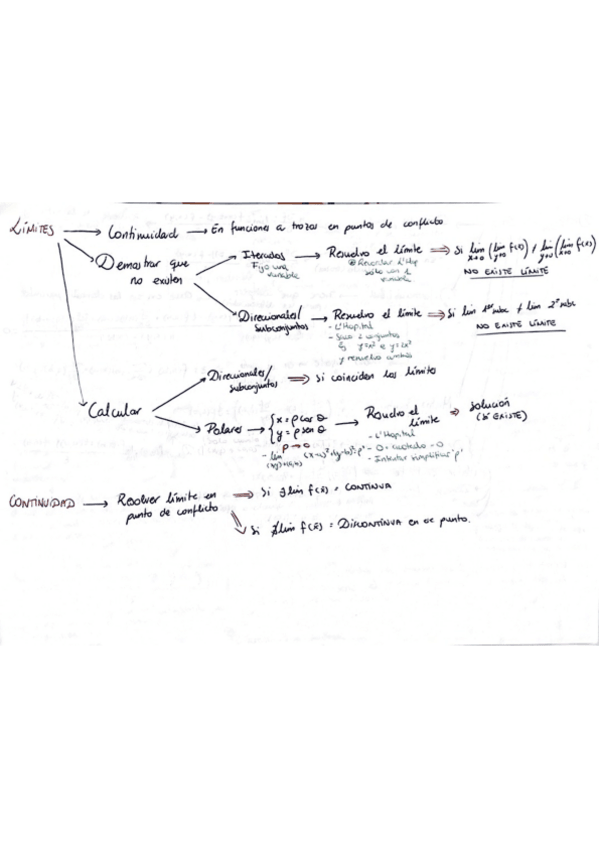 LÍMITES → Continuidad → En funciones a trozos en puntos de conflicto
Demostrar que no existen
Iterados → Resuelvo el límite ⇒ Si lim x→0 (lim y→0 f(x)) ≠ lim y→0 (lim x→0 f(x))
Fijo una variable
Recordar L'Hop sólo con 1 variable
NO EXISTE LÍMITE
Direccionales/ subconjuntos → Resuelvo el límite ⇒ Si lim 1er subc ≠ lim 2º subc
- L'Hopital
- Saco 2 conjuntos
y=x² e y=2x²
y resuelvo ambos
NO EXISTE LÍMITE
Calcular
Direccionales/ subconjuntos ⇒ Si coinciden los límites
Polares → { x = ρ cos θ
y = ρ sen θ → Resuelvo el límite ⇒ Solución (SI EXISTE)
ρ → 0
- lim (x,y)→(a,b) (x-a)²+(y-b)²=ρ²
- L'Hopital
- 0 · acotado = 0
- Intentar simplificar 'ρ'
CONTINUIDAD → Resolver límite en punto de conflicto ⇒ Si ∃ lim f(x̄) = CONTINUA
Si ∄ lim f(x̄) = DISCONTINUA en ese punto.